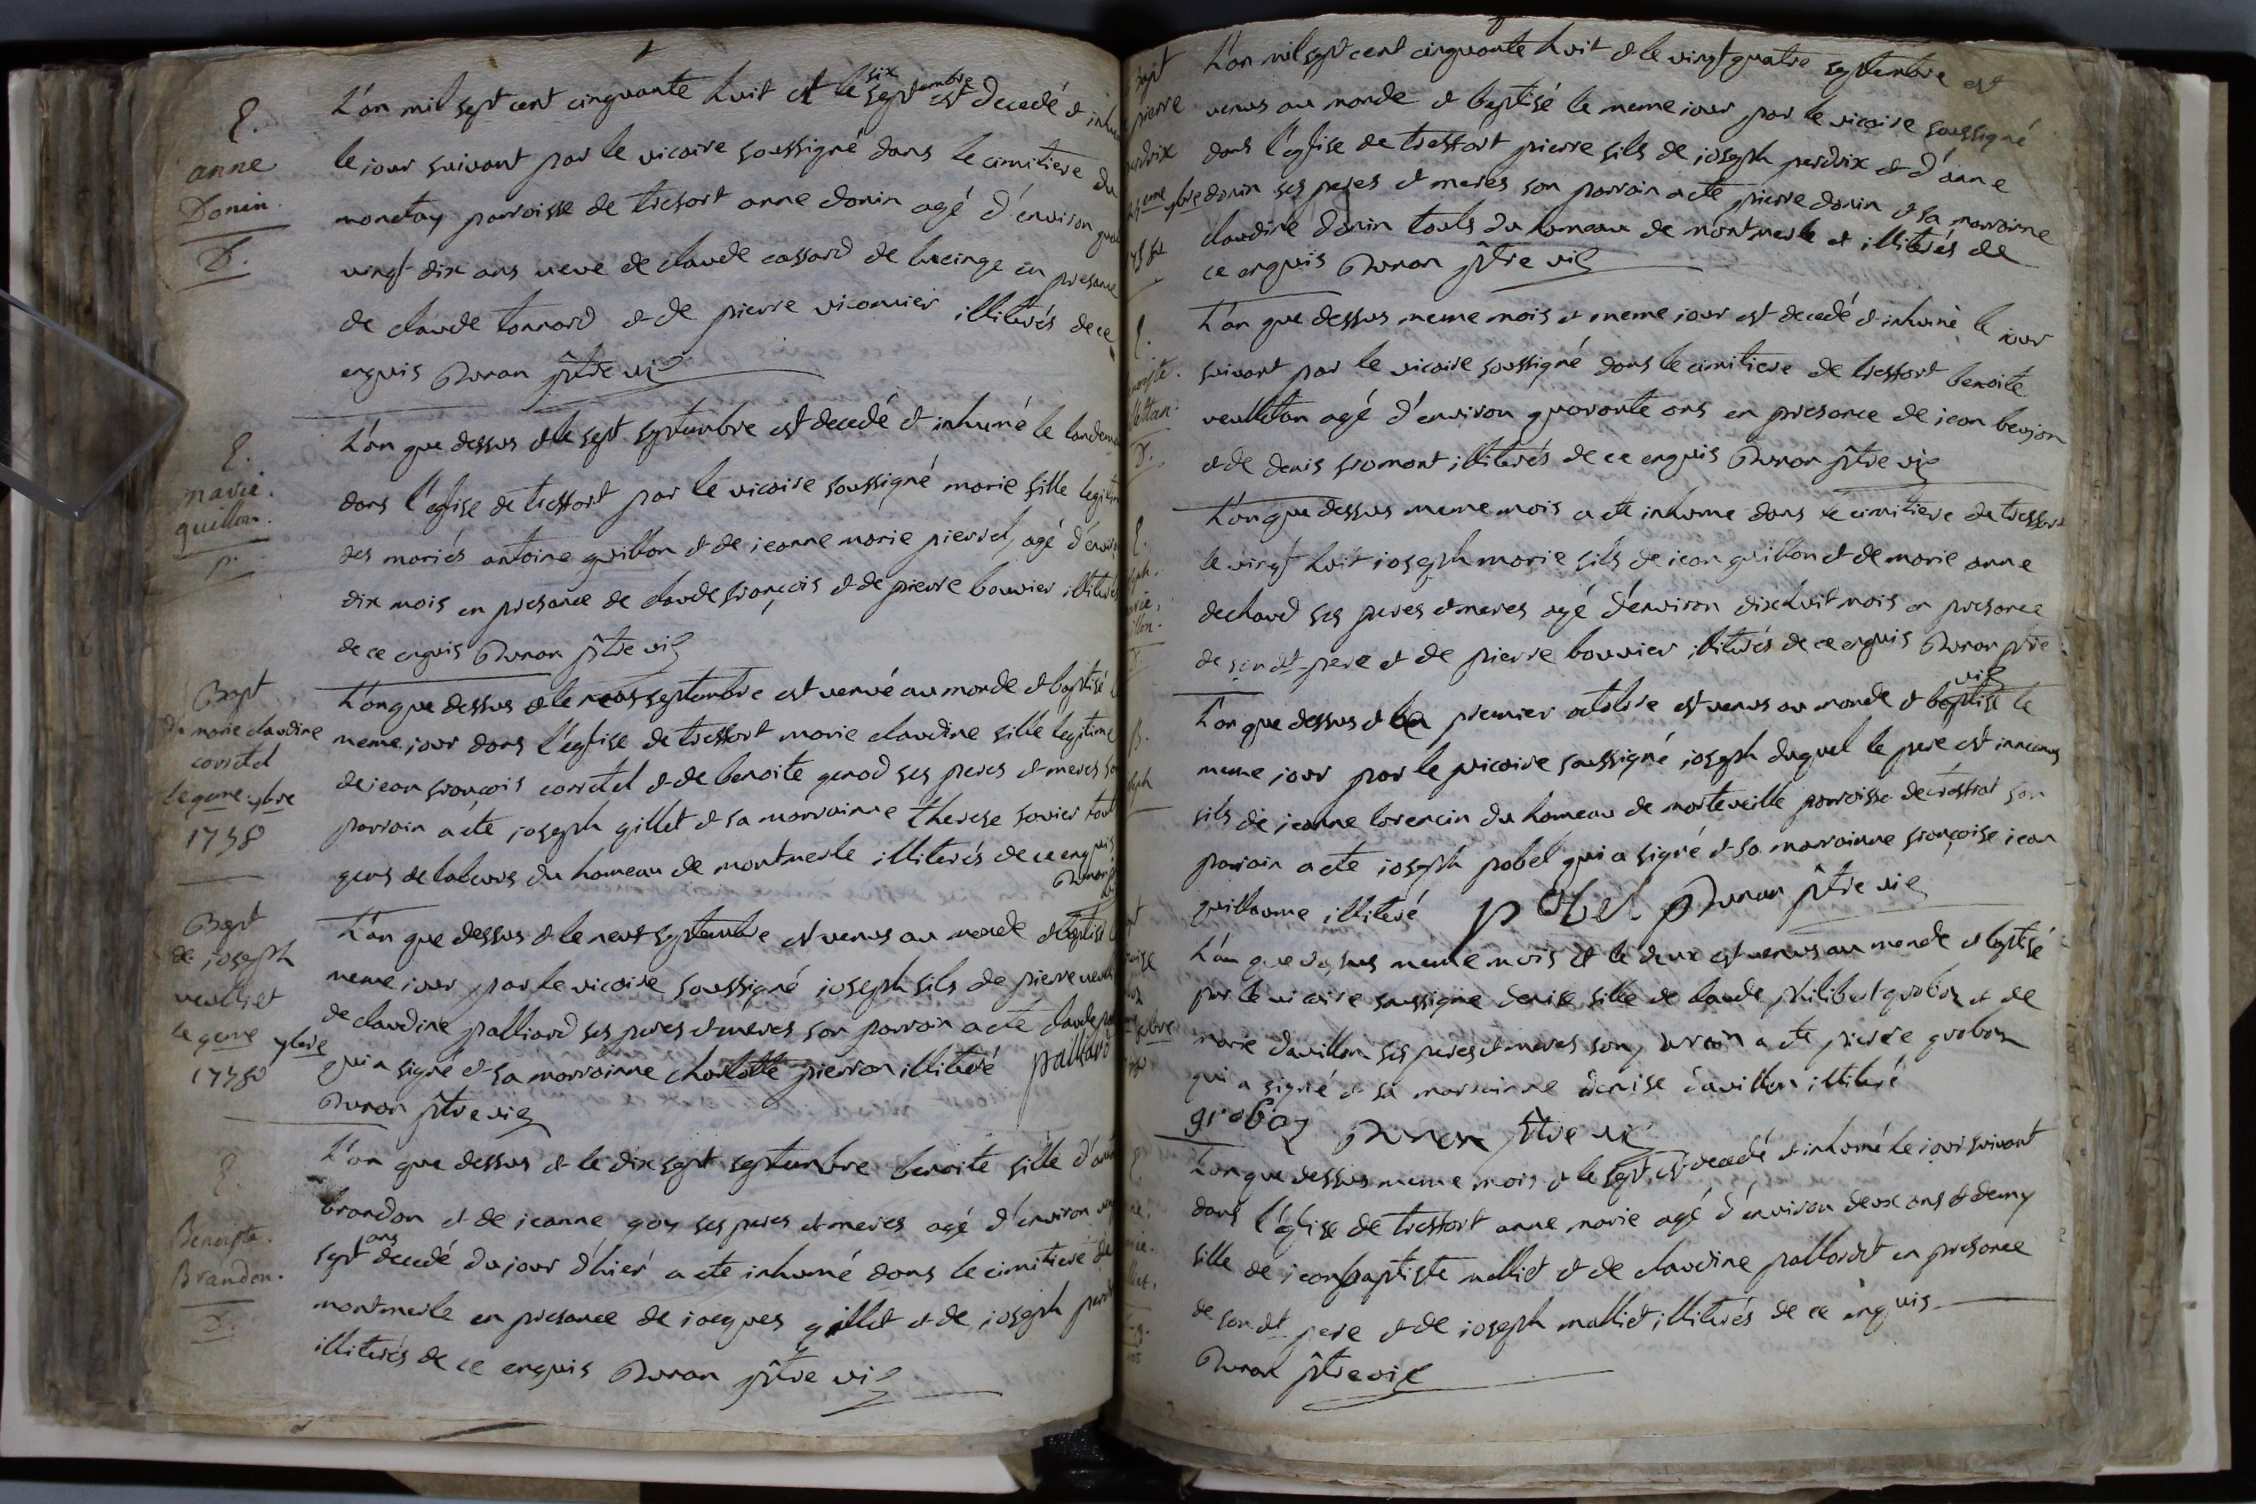 E.
anne
Donin.
D.
L'an mil sept cent cinquante huit et le six septembre est decedé et
le jour suivant par le vicaire soussigné dans le cimitiere du
monetay parroisse de tresort anne donin agé d'environ
vingt dix ans veuve de claude cassard de lucinge en presance
de claude tonnard et de pierre viconnier illiterés de ce
enquis Duran ptre vic
E.
marie.
guillon.
L'an que dessus et le sept septembre est decedé et inhumé le
dans l'eglise de tressort par le vicaire soussigné marie fille
des mariés antoine guillon et de jeanne marie pierrel, agé
dix mois en presance de claude françois et de pierre bouvier
de ce enquis Duran ptre vic
Bapt
de marie claudine
corretel
le 9eme 7bre
1758
L'an que dessus et le neuf septembre est venué au monde et baptisé
meme jour dans l'eglise de tressort marie claudine fille legitime
de jean françois corretel et de benoite genod ses peres et meres
parrain a été joseph gillet et sa marrainne therese savier
gens de labeurs du hameau de montmerle illiterés de ce enquis
Duran
Bapt
de joseph
veuillet
le 9eme 7bre
1758
L'an que dessus et le neuf septembre est venus au monde et baptisé
meme jour par le vicaire soussigné joseph fils de pierre
de claudine palliard ses peres et meres son parrain a été claude
qui a signé et sa marrainne charlotte pierron illiteré palliard
Duran ptre vic
E.
Benoiste.
Brandon.
D.
L'an que dessus et le dix sept septembre benoite fille
brandon et de jeanne goy ses peres et meres agé d'environ
sept ans decedé du jour d'hiér a été inhumé dans le cimitiere de
montmerle en presance de jacques gillet et de joseph
illiterés de ce enquis Duran ptre vic
Bapt
pierre
perdrix
L'an mil sept cent cinquante huit et le vingt quatre septembre est
venus au monde et baptisé le meme jour par le vicaire soussigné
dans l'eglise de tressort pierre fils de joseph perdrix et d'anne
donin ses peres et meres son parrain a été pierre donin et sa marrainne
claudine donin touts du hameau de montmerle et illiterés de
ce enquis Duran ptre vic
L'an que dessus meme mois et meme jour est decedé et inhumé le jour
suivant par le vicaire soussigné dans le cimitiere de tressort benoite
veuilletan agé d'environ quarante ans en presance de jean beujon
et de denis fromont illiterés de ce enquis Duran ptre vic
L'an que dessus meme mois a été inhumé dans le cimitiere de tressort
le vingt huit joseph marie fils de jean guillon et de marie anne
dechaud ses peres et meres agé d'environ dixhuit mois en presance
de son dt pere et de pierre bouvier illiterés de ce enquis Duran ptre
vic
L'an que dessus et le premier octobre est venus au monde et baptisé le
meme jour par le vicaire soussigné joseph duquel le pere est inconnus
fils de jeanne lorencin du hameau de morteveille parroisse de tressort son
parrain a été joseph pobel qui a signé et sa marrainne françoise jean
guillaume illiteré pobel Duran ptre vic
L'an que dessus meme mois et le deux est venus au monde et baptisé
par le vicaire soussigné denise fille de claude philibert groboz et de
marie davillon ses peres et meres son parrain a été pierre groboz
qui a signé et sa marrainne denise davillon illiteré
groboz Duran ptre vic
L'an que dessus meme mois et le sept est decedé et inhumé le jour suivant
dans l'eglise de tressort anne marie agé d'environ deux ans et demy
fille de jean baptiste malliet et de claudine pallordet en presance
de son dt pere et de joseph malliet illiterés de ce enquis
Duran ptre vic